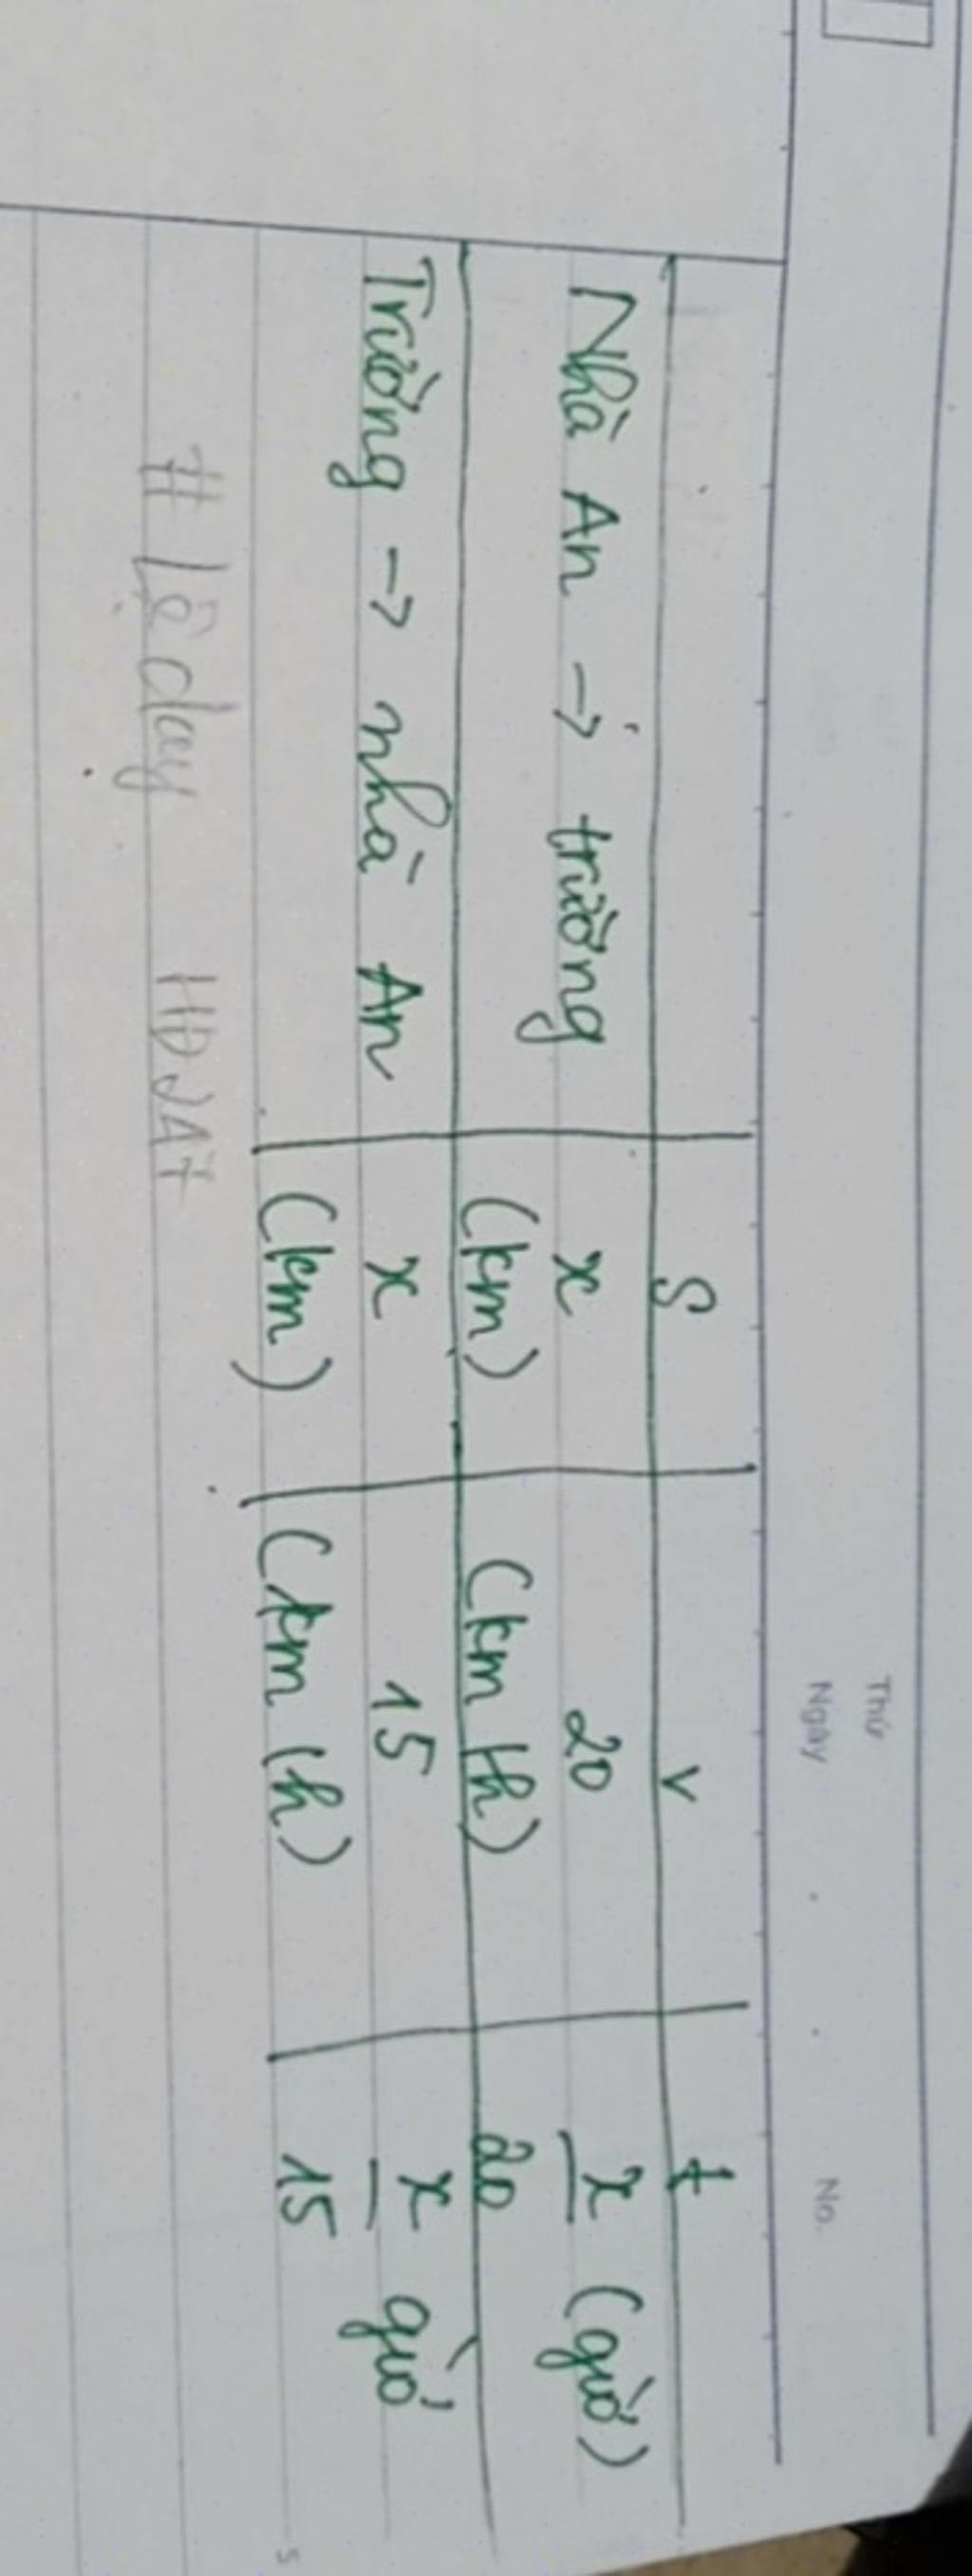 Thứ
Ngày No.
S v t
Nhà An → trường x 20 x (giờ)
(km) (km/h) 20
Trường → nhà An x 15 x giờ
(km) (km/h) 15
# Lê day HD247
5